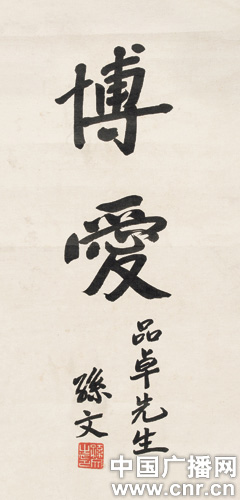 博愛
品卓先生
孫文
中国广播网
www.cnr.cn